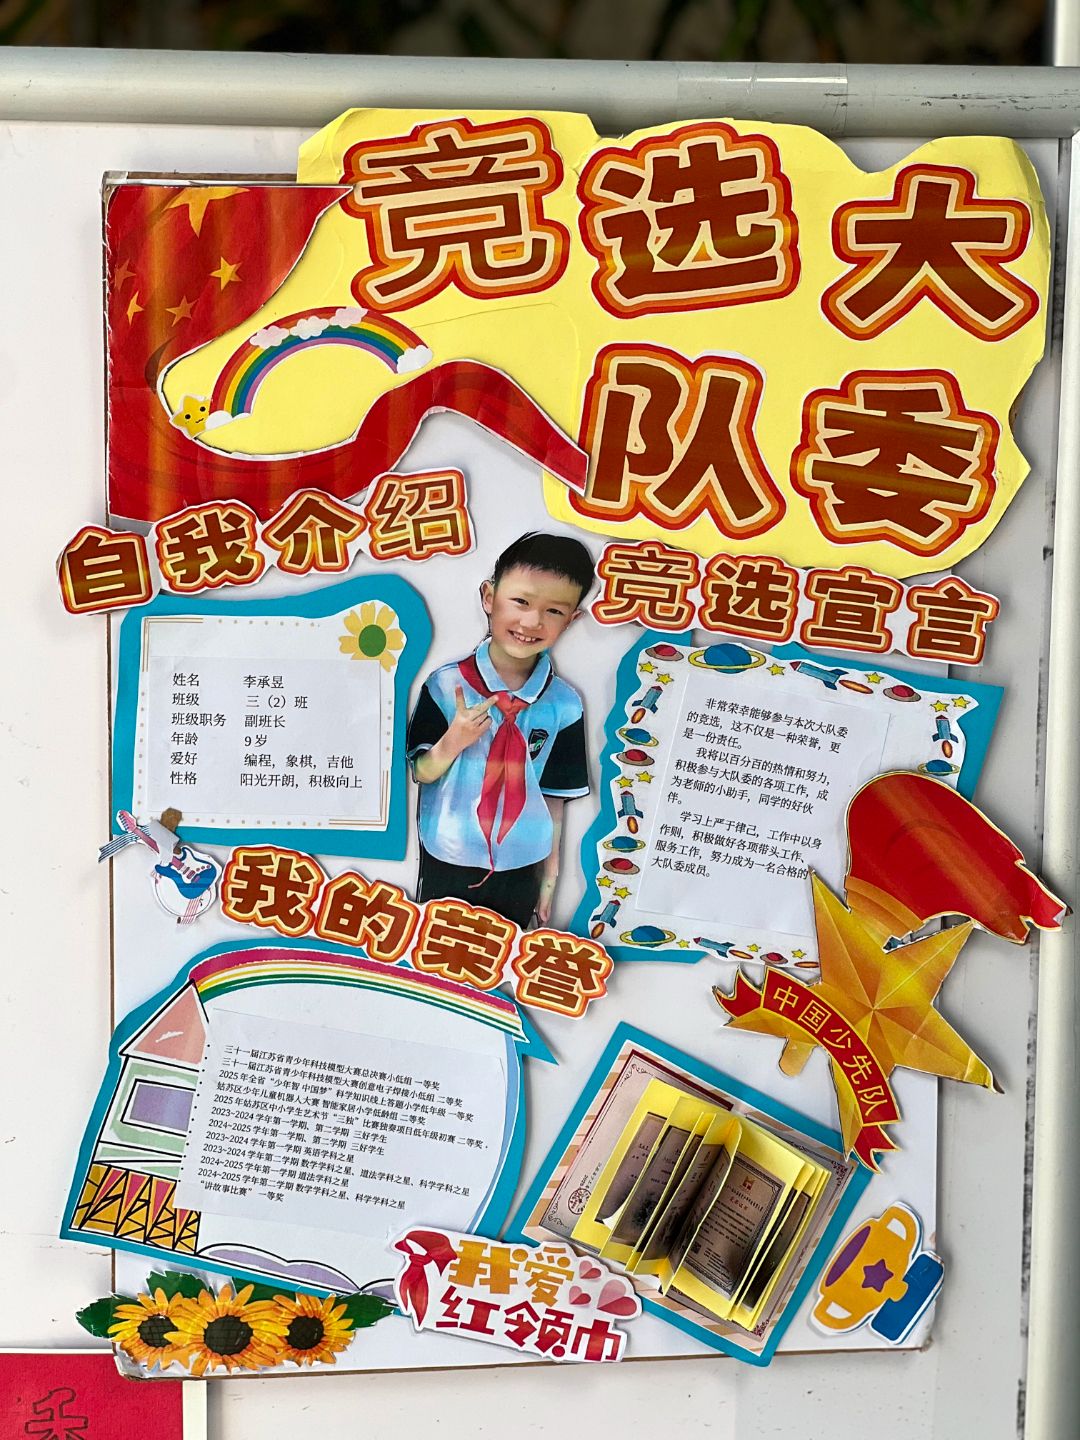 竞选大
队委
自我介绍
姓名 李承昱
班级 三（2）班
班级职务 副班长
年龄 9岁
爱好 编程，象棋，吉他
性格 阳光开朗，积极向上
竞选宣言
非常荣幸能够参与本次大队委
的竞选，这不仅是一种荣誉，更
是一份责任。
我将以百分百的热情和努力，
积极参与大队委的各项工作，成
为老师的小助手，同学的好伙
伴。
学习上严于律己，工作中以身
作则，积极做好各项带头工作、
服务工作，努力成为一名合格的
大队委成员。
我的荣誉
三十一届江苏省青少年科技模型大赛总决赛小低组 一等奖
三十一届江苏省青少年科技模型大赛创意电子焊接小低组 二等奖
2025年全省“少年智 中国梦”科学知识线上答题小学低年级 一等奖
姑苏区少年儿童机器人大赛 智能家居小学低龄组 二等奖
2025年姑苏区中小学生艺术节“三独”比赛独奏项目低年级初赛 二等奖
2023~2024学年第一学期、第二学期 三好学生
2024~2025学年第一学期、第二学期 三好学生
2023~2024学年第一学期 英语学科之星
2023~2024学年第二学期 数学学科之星、道法学科之星、科学学科之星
2024~2025学年第一学期 道法学科之星
2024~2025学年第二学期 数学学科之星、科学学科之星
“讲故事比赛” 一等奖
中国少先队
我爱
红领巾